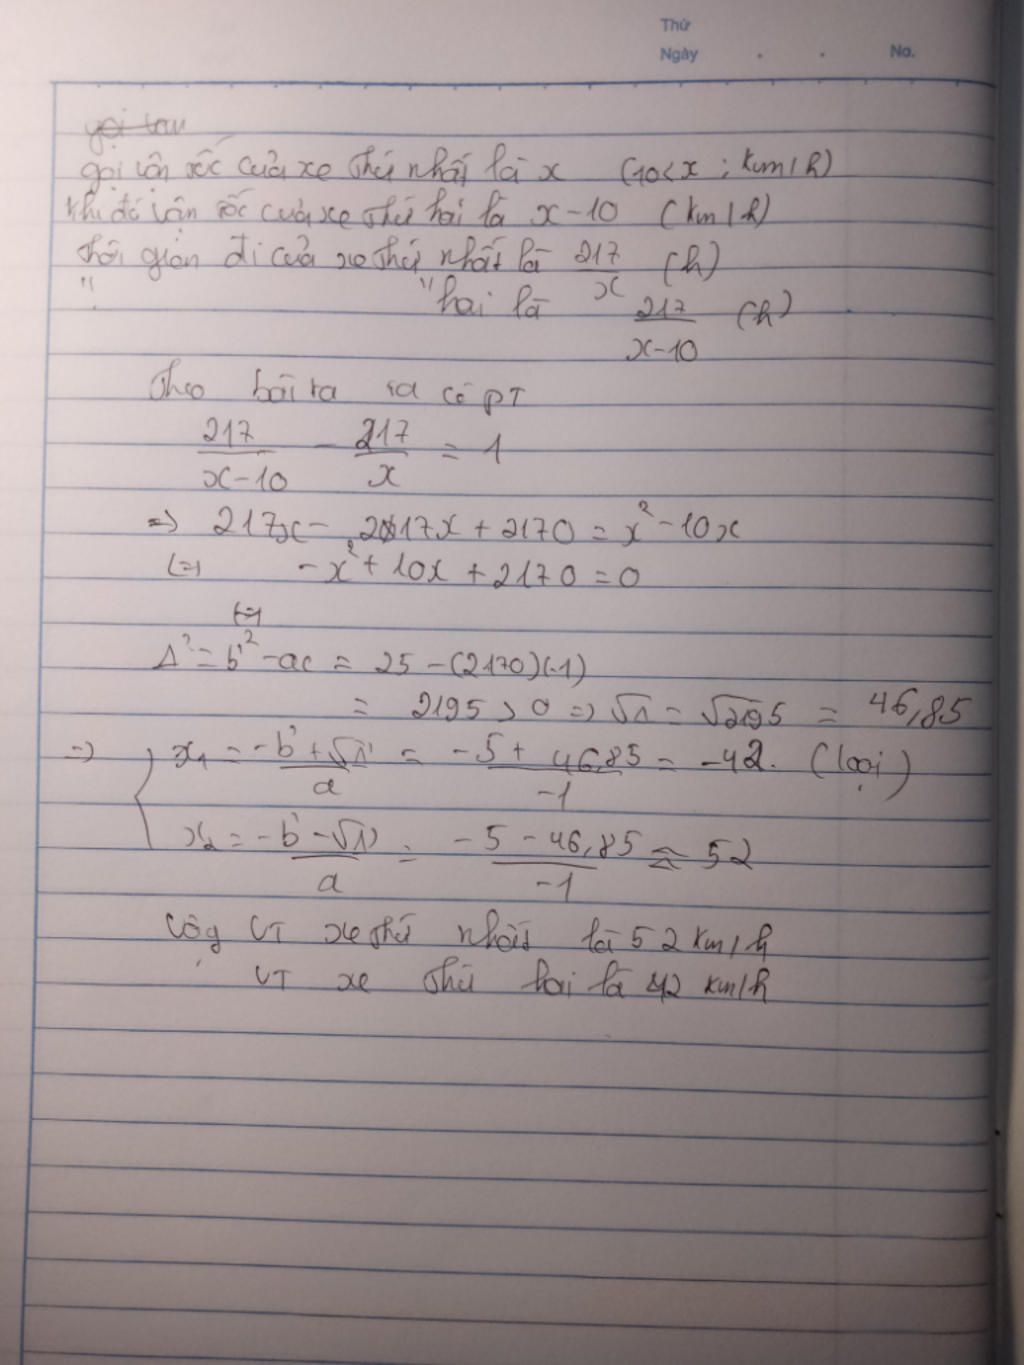 Thứ
Ngày . . No.
gọi vận tốc của xe thứ nhất là x (10<x ; km/h)
khi đó vận tốc của xe thứ hai là x-10 (km/h)
thời gian đi của xe thứ nhất là 217/x (h)
" "hai là 217/x-10 (h)
Theo bài ra ta có PT
217/x-10 - 217/x = 1
=> 217x - 217x + 2170 = x² - 10x
<=> -x² + 10x + 2170 = 0
<=>
Δ' = b'² - ac = 25 - (2170)(-1)
= 2195 > 0 => √Δ = √2195 = 46,85
=> x₁ = -b' + √Δ'/a = -5 + 46,85/-1 = -42. (loại)
x₂ = -b' - √Δ'/a = -5 - 46,85/-1 ≈ 52
Vậy VT xe thứ nhất là 52 km/h
VT xe thứ hai là 42 km/h